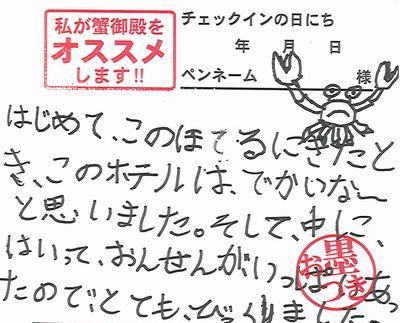 私が蟹御殿を
オススメ
します!!
チェックインの日にち
年 月 日
ペンネーム 様
はじめて、このほてるにきたと
き、このホテルは、でかいなー
と思いました。そして、中に、
はいって、おんせんがいっぱいあっ
たので、とても、びっくりました。
お墨つき